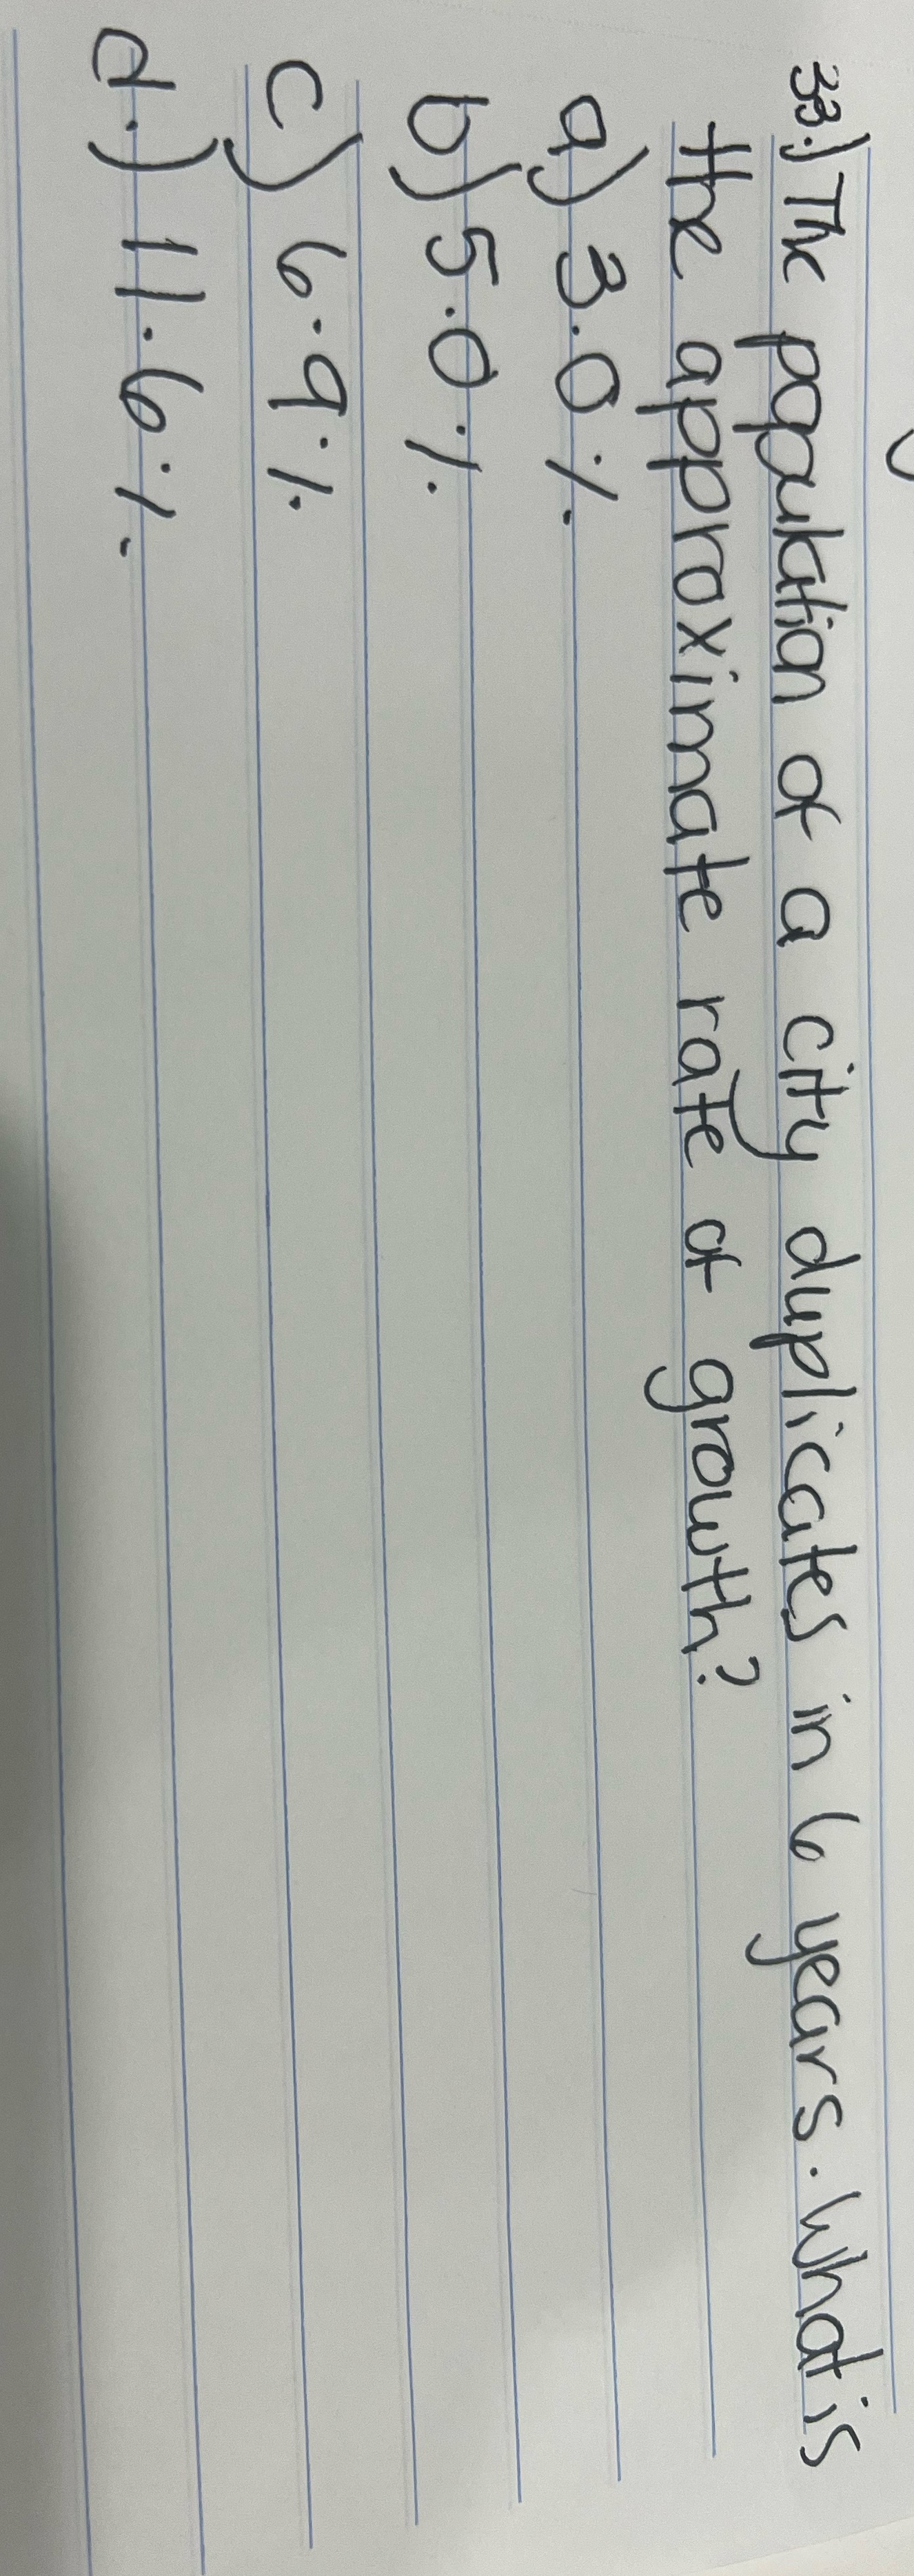 33.) The population of a city duplicates in 6 years. What is
the approximate rate of growth?
a) 3.0%
b) 5.0%
c) 6.9%
d.) 11.6%